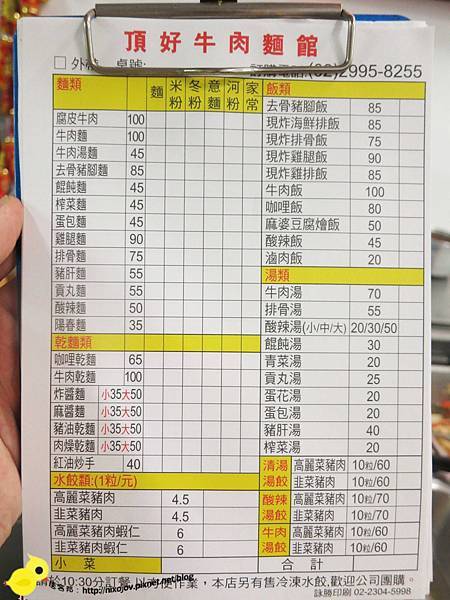 頂好牛肉麵館
□外帶 桌號: 訂購電話:(02)2995-8255
麵類 麵 米粉 冬粉 意麵 河粉 家常
腐皮牛肉 100
牛肉麵 100
牛肉湯麵 45
去骨豬腳麵 85
餛飩麵 45
榨菜麵 45
蛋包麵 45
雞腿麵 90
排骨麵 75
豬肝麵 55
貢丸麵 55
酸辣麵 50
陽春麵 35
乾麵類
咖哩乾麵 65
牛肉乾麵 100
炸醬麵 小35大50
麻醬麵 小35大50
豬油乾麵 小35大50
肉燥乾麵 小35大50
紅油炒手 40
水餃類:(1粒/元)
高麗菜豬肉 4.5
韭菜豬肉 4.5
高麗菜豬肉蝦仁 6
韭菜豬肉蝦仁 6
小菜
飯類
去骨豬腳飯 85
現炸海鮮排飯 85
現炸排骨飯 75
現炸雞腿飯 90
現炸雞排飯 85
牛肉飯 100
咖哩飯 80
麻婆豆腐燴飯 50
酸辣飯 45
滷肉飯 20
湯類
牛肉湯 70
排骨湯 55
酸辣湯(小/中/大) 20/30/50
餛飩湯 30
青菜湯 20
貢丸湯 25
蛋花湯 20
蛋包湯 20
豬肝湯 40
榨菜湯 20
清湯湯餃 高麗菜豬肉 10粒/60
韭菜豬肉 10粒/60
酸辣湯餃 高麗菜豬肉 10粒/70
韭菜豬肉 10粒/70
牛肉湯餃 高麗菜豬肉 10粒/60
韭菜豬肉 10粒/60
合計
於10:30分訂餐,以方便作業,本店另有售冷凍水餃,歡迎公司團購。
詠勝印刷 02-2304-5998
http://nixojov.pixnet.net/blog